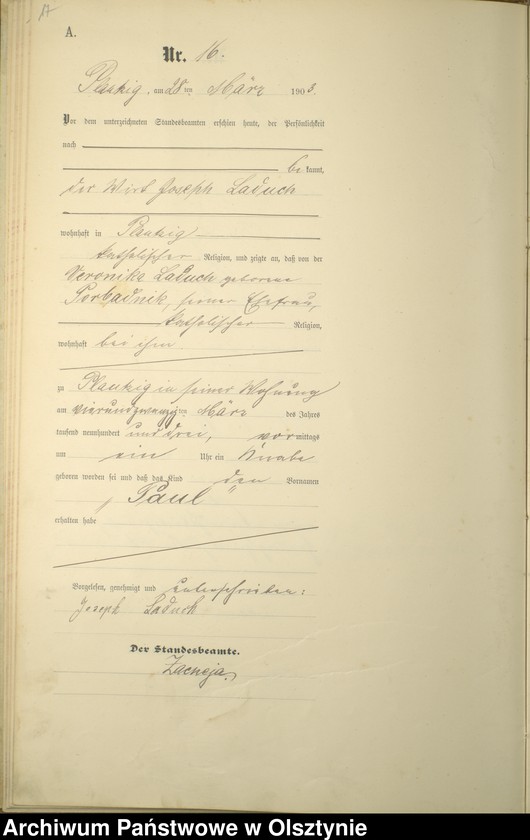 17
A.
Nr. 16.
Plautzig, am 28ten März 1903.
Vor dem unterzeichneten Standesbeamten erschien heute, der Persönlichkeit
nach
be kannt,
der Wirt Joseph Laduch
wohnhaft in Plautzig
katholischer Religion, und zeigte an, daß von der
Veronika Laduch geborene
Porbadnik, seiner Ehefrau,
katholischer Religion,
wohnhaft bei ihm
zu Plautzig in seiner Wohnung
am vierundzwanzigten März des Jahres
tausend neunhundert und drei, vormittags
um ein Uhr ein Knabe
geboren worden sei und daß das Kind den Vornamen
„Paul“
erhalten habe
Vorgelesen, genehmigt und unterschrieben:
Joseph Laduch
Der Standesbeamte.
Archiwum Państwowe w Olsztynie